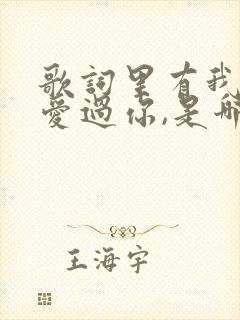 歌詞里有我
愛過你,是哪
王海宇